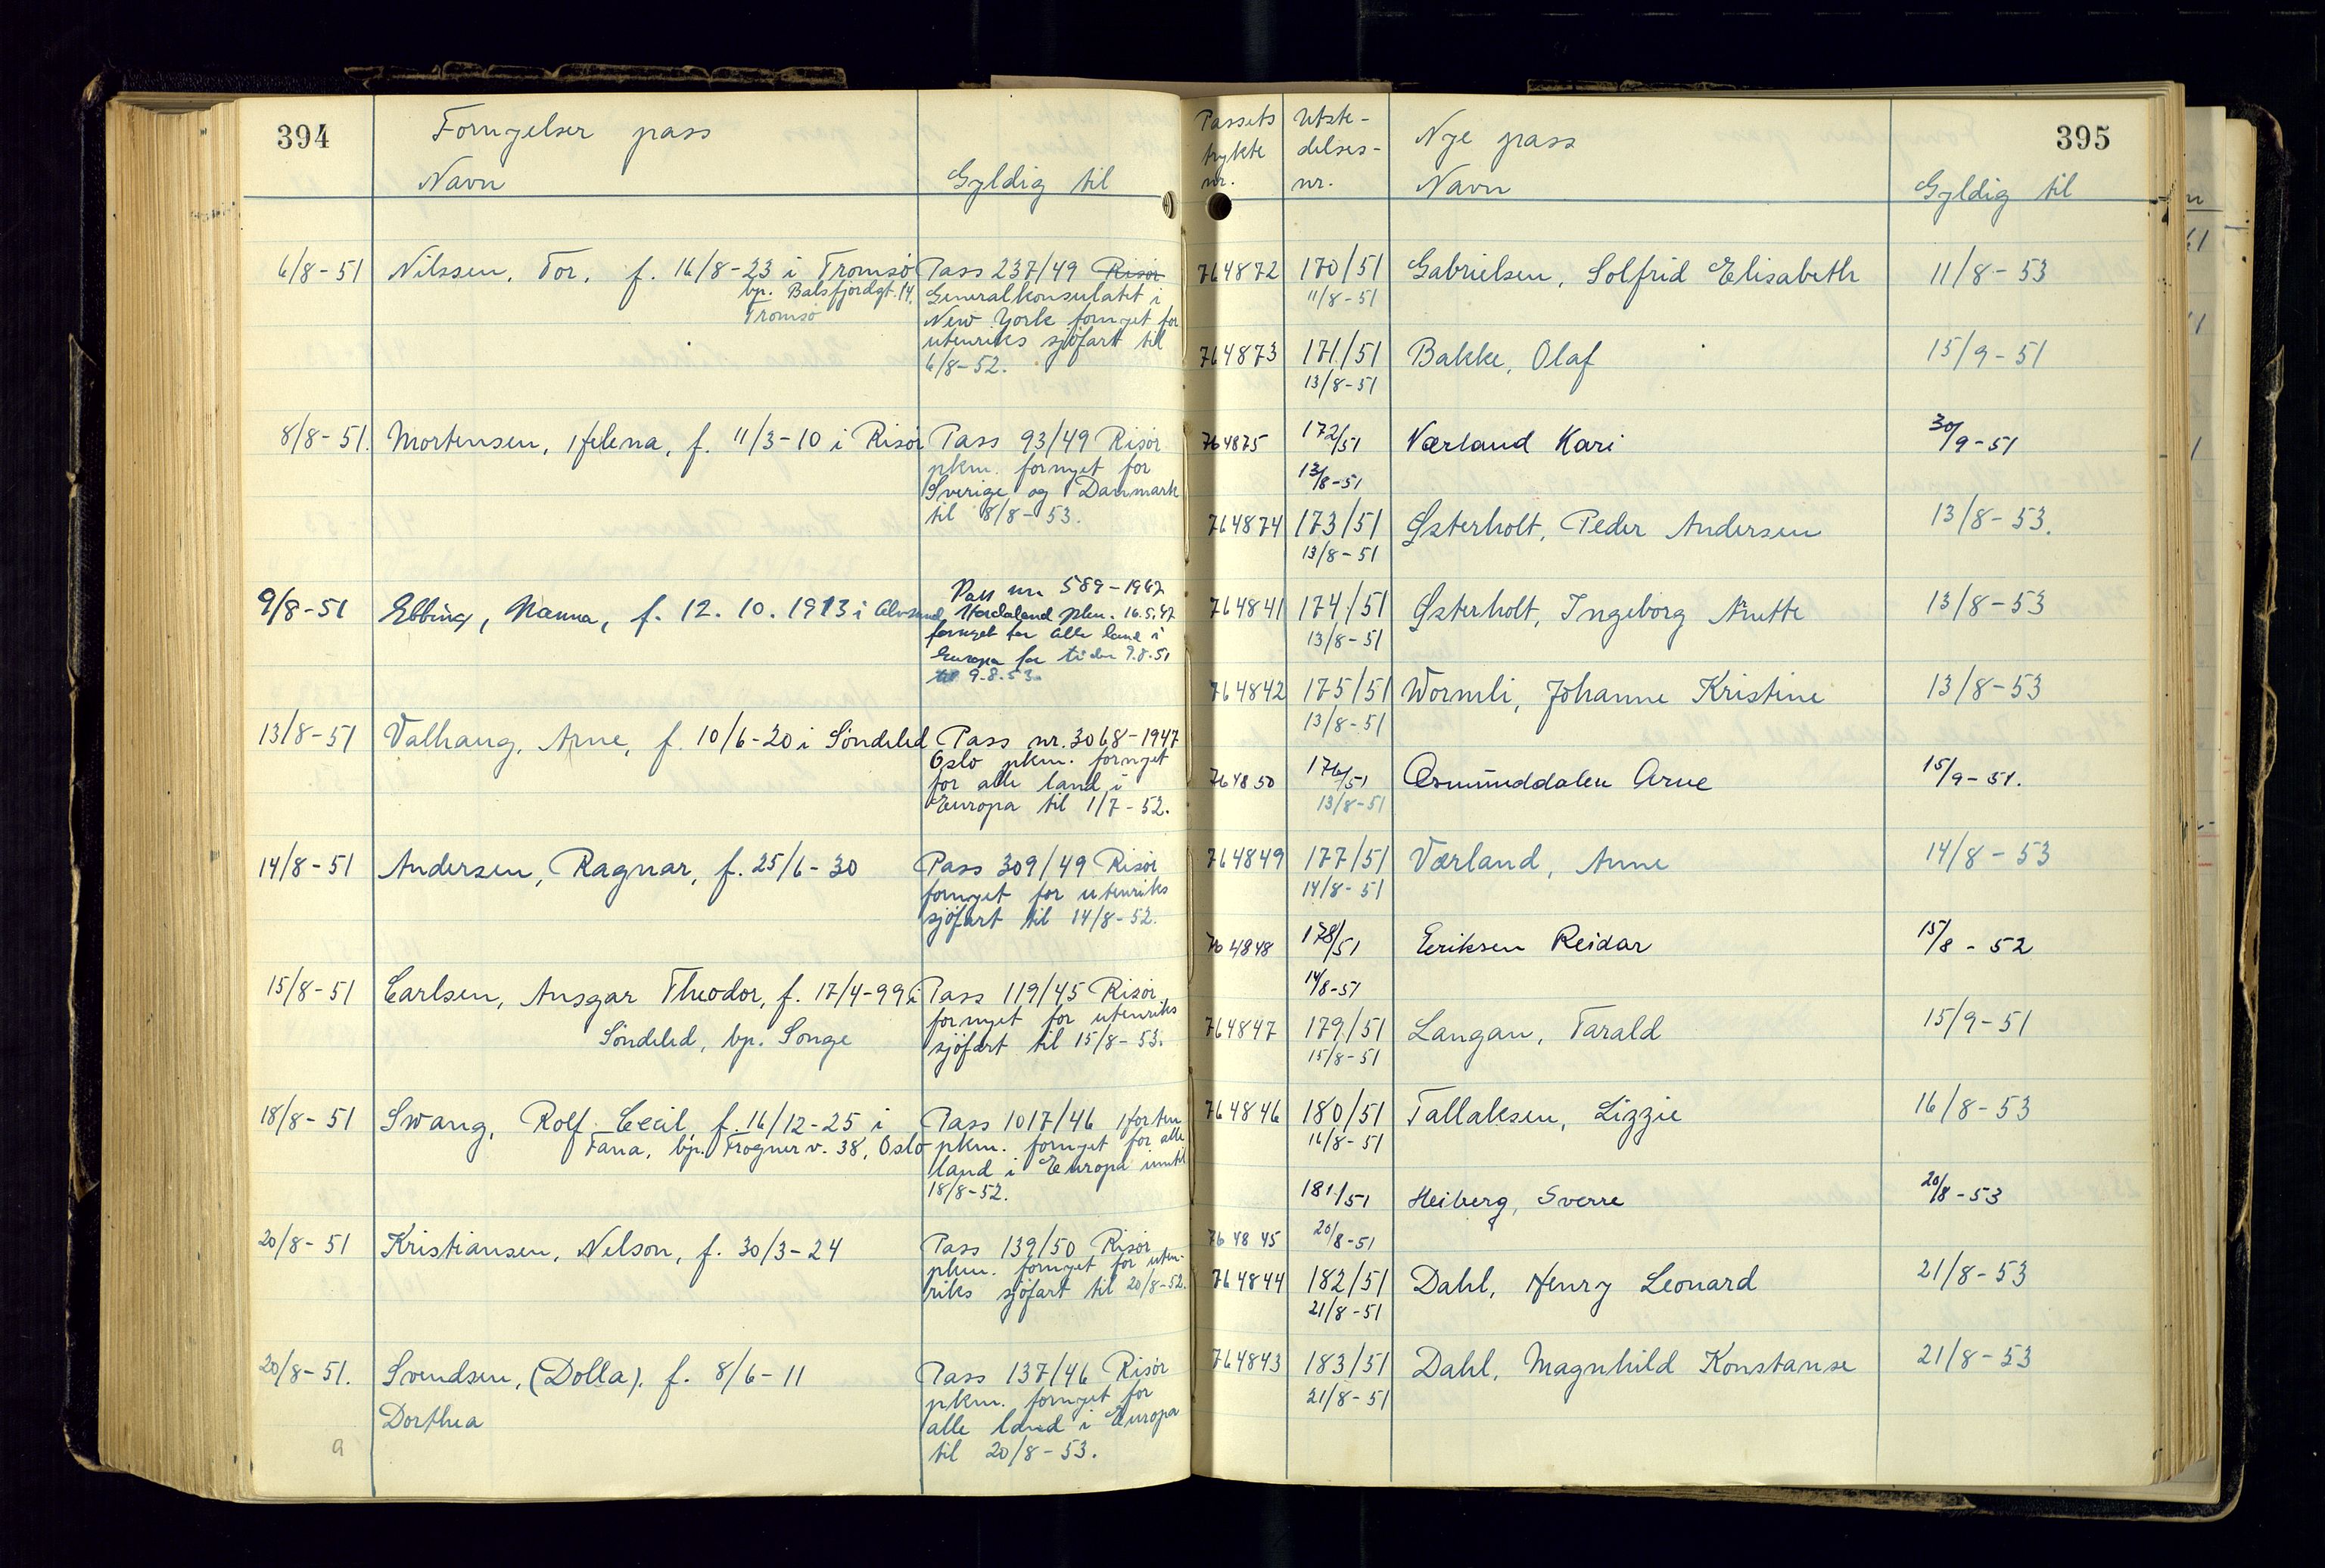 394
Fornyelser pass
Navn
Gyldig til
6/8-51 Nilssen, Tor, f. 16/8-23 i Tromsø
bp. Balsfjordgt. 14,
Tromsø
Pass 237/49 Risør
Generalkonsulatet i
New York fornyet for
utenriks sjøfart til
6/8-52.
8/8-51. Mortensen, Helena, f. 11/3-10 i Risør
Pass 93/49 Risør
pkm. fornyet for
Sverige og Danmark
til 8/8-53.
9/8-51 Ebbing, Nanna, f. 12. 10. 1913 i
Pass nr 589-1947
Hordaland pkm. 16.5.47
fornyet for alle land i
Europa for tiden 9.8.51
til 9.8.53.
13/8-51 Valhaug, Arne, f. 10/6-20 i Søndeled
Pass nr. 3068-1947
Oslo pkm. fornyet
for alle land i
Europa til 1/7-52.
14/8-51 Andersen, Ragnar, f. 25/6-30
Pass 309/49 Risør
fornyet for utenriks
sjøfart til 14/8-52.
15/8-51 Carlsen, Ansgar Theodor, f. 17/4-99 i
Søndeled, bp. Songe
Pass 119/45 Risør
fornyet for utenriks
sjøfart til 15/8-53.
18/8-51 Swang, Rolf Cecil f. 16/12-25 i
Fana, bp. Frogner v. 38, Oslo
Pass 1017/46 Horten
pkm. fornyet for alle
land i Europa inntil
18/8-52.
20/8-51 Kristiansen, Nelson, f. 30/3-24
Pass 139/50 Risør
pkm. fornyet for uten-
riks sjøfart til 20/8-52.
20/8-51. Svendsen, (Dolla), f. 8/6-11
Dorthea
Pass 137/46 Risør
pkm. fornyet for
alle land i Europa
til 20/8-53.
a
395
Passets
trykte
nr.
Utste-
delses-
nr.
Nye pass
Navn
Gyldig til
764872 170/51 Gabrielsen, Solfrid Elisabeth 11/8-53
11/8-51
764873 171/51 Bakke, Olaf 15/9-51
13/8-51
764875 172/51 Værland Kari 30/9-51
13/8-51
764874 173/51 Østerholt, Peder Andersen 13/8-53.
13/8-51
764841 174/51 Østerholt, Ingeborg Anette 13/8-53
13/8-51
764842 175/51 Wormli, Johanne Kristine 13/8-53
13/8-51
764850 176/51 Osmunddalen Arne 15/9-51.
13/8-51
764849 177/51 Værland, Anne 14/8-53
14/8-51
764848 178/51 Eeriksen Reidar 15/8-52
14/8-51
764847 179/51 Langan, Tarald 15/9-51
15/8-51
764846 180/51 Tallaksen, Lizzie 16/8-53
16/8-51
181/51 Heiberg, Sverre 20/8-53
764845 20/8-51
764844 182/51 Dahl, Henry Leonard 21/8-53
21/8-51
764843 183/51 Dahl, Magnhild Konstanse 21/8-53
21/8-51